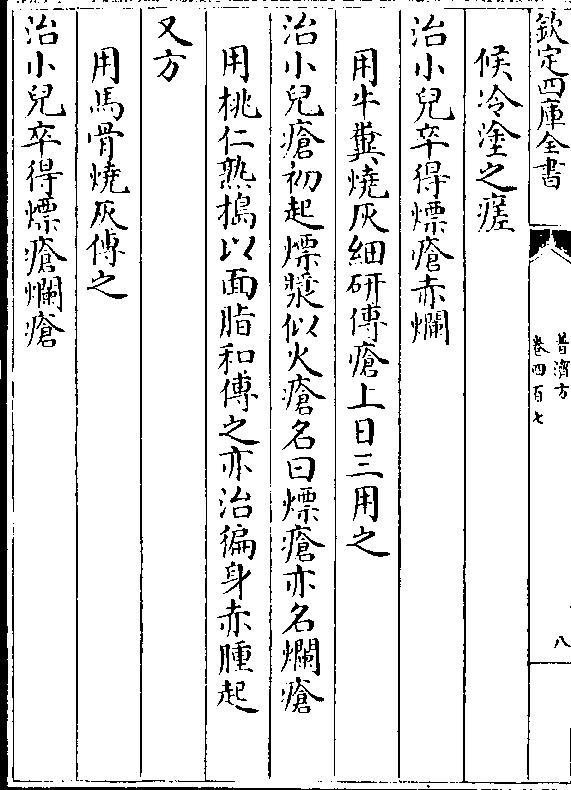 欽定四庫全書
普濟方
卷四百七
八
候冷塗之瘥
治小兒卒得熛瘡赤爛
用牛糞燒灰細研傅瘡上日三用之
治小兒瘡初起熛漿似火瘡名曰熛瘡亦名爛瘡
用桃仁熟搗以面脂和傅之亦治徧身赤腫起
又方
用馬骨燒灰傅之
治小兒卒得熛瘡爛瘡